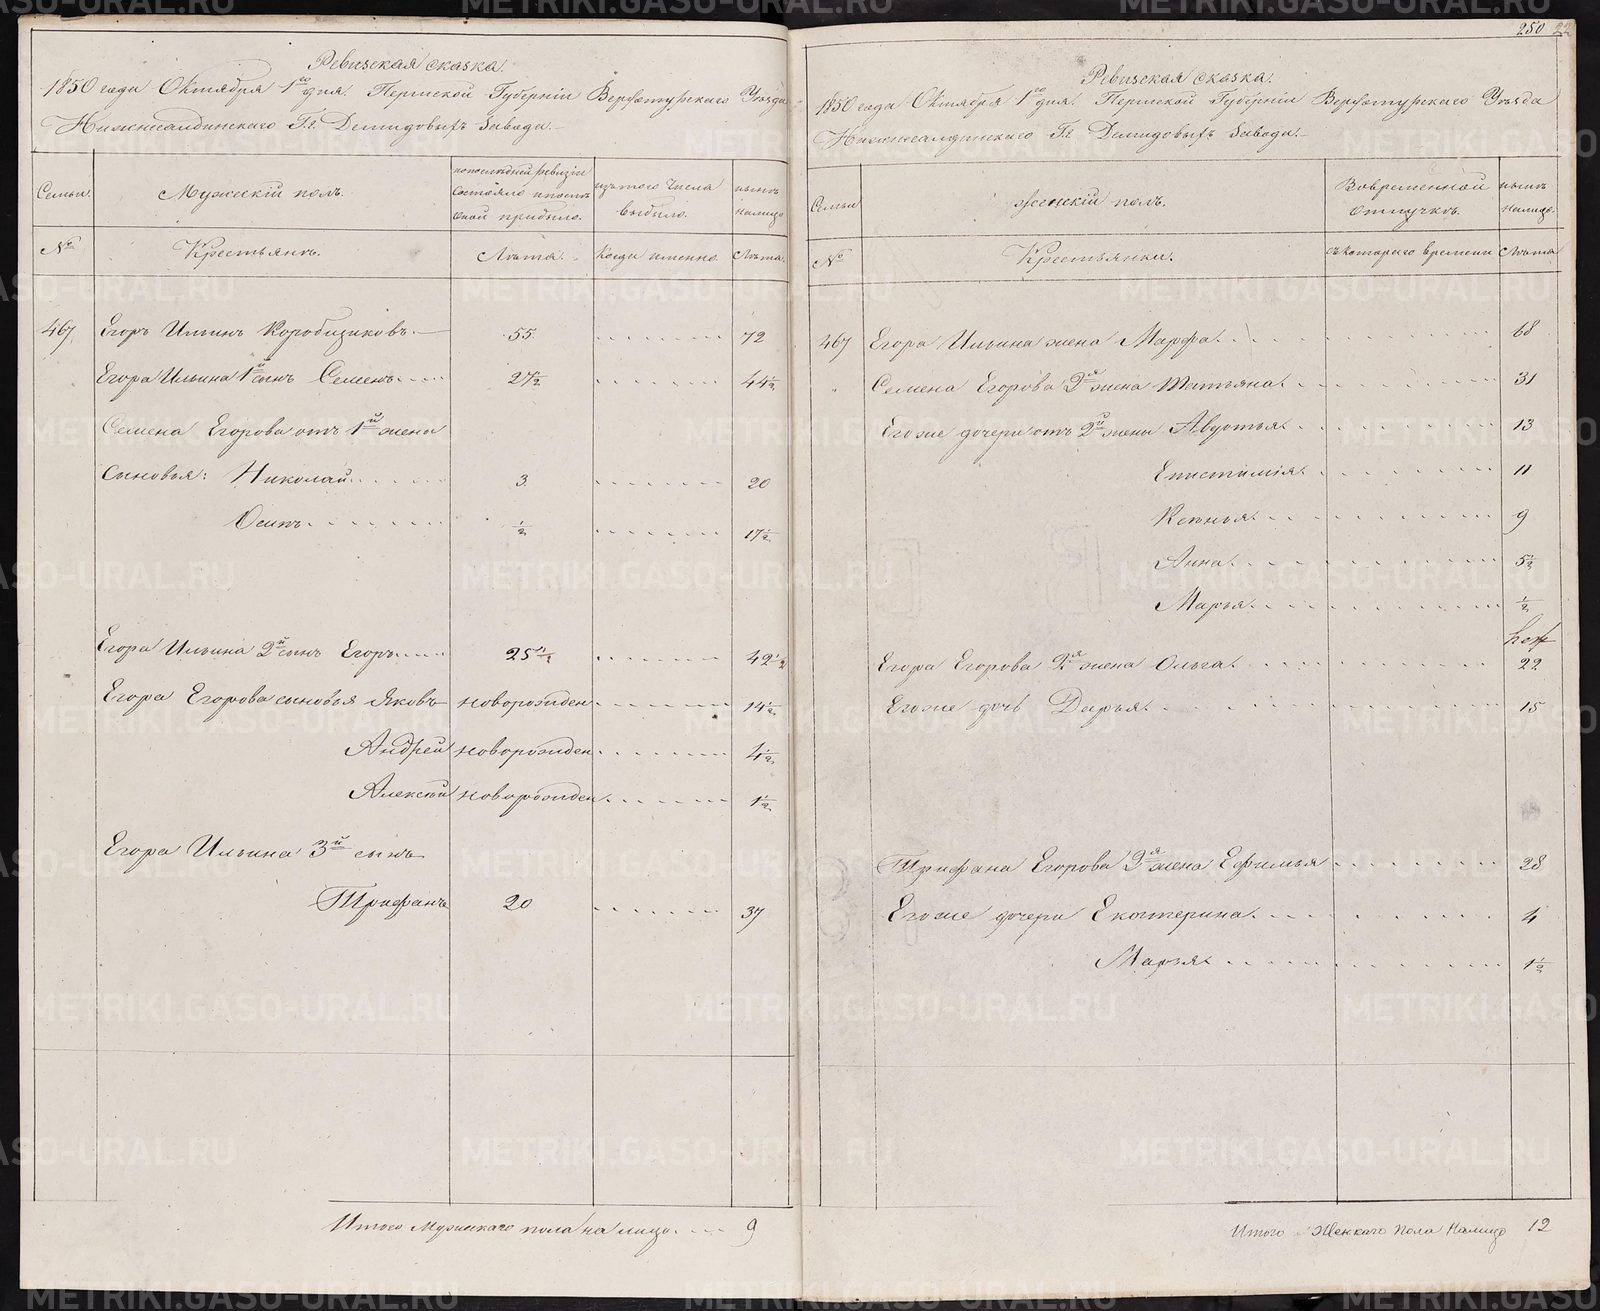 Ревизская сказка.
1850 года Октября 1го дня. Пермской Губернiи Верхотурскаго Уѣзда
Нижнесалдинскаго Г.г. Демидовыхъ Завода.
Семьи.
Мужескiй полъ.
по последней ревизiи
состояло и после
оной прибыло.
изъ того числа
выбыло.
нынѣ
налицо
№
Крестьянъ.
Лѣта.
Когда именно.
Лѣта.
467. Егоръ Ильинъ Коробициковъ. 55. 72
Егора Ильина 1й сынъ Семенъ. 27½ 44½
Семена Егорова отъ 1й жены
сыновья: Николай. 3. 20
Осипъ. ½ 17½
Егора Ильина 2й сынъ Егоръ 25½ 42½
Егора Егорова сыновья Яковъ новорожден. 14½
Андрей новорожден. 4½
Алексѣй новорожден. 1½
Егора Ильина 3й сынъ
Трифанъ 20 37
Итого Мужескаго пола на лицо. 9
250
Ревизская сказка.
1850 года Октября 1го дня. Пермской Губернiи Верхотурскаго Уѣзда
Нижнесалдинскаго Г.г. Демидовыхъ Завода.
Семьи
Женскiй полъ.
Вовременной
отлучкѣ.
нынѣ
налицо.
№
Крестьянки.
съ котораго времени
Лѣта
467 Егора Ильина жена Марфа. 68
Семена Егорова 2я жена Татьяна. 31
Егоже дочери отъ 2й жены Авдотья. 13
Епистимiя. 11
Ксенья. 9
Анна. 5½
Марья. ½
Егора Егорова 2я жена Ольга. 22
Егоже дочь Дарья. 15
Трифана Егорова 2я жена Ефимья 28
Егоже дочери Екатерина. 4
Марья. 1½
Итого Женскаго пола Налицо 12
METRIKI.GASO-URAL.RU